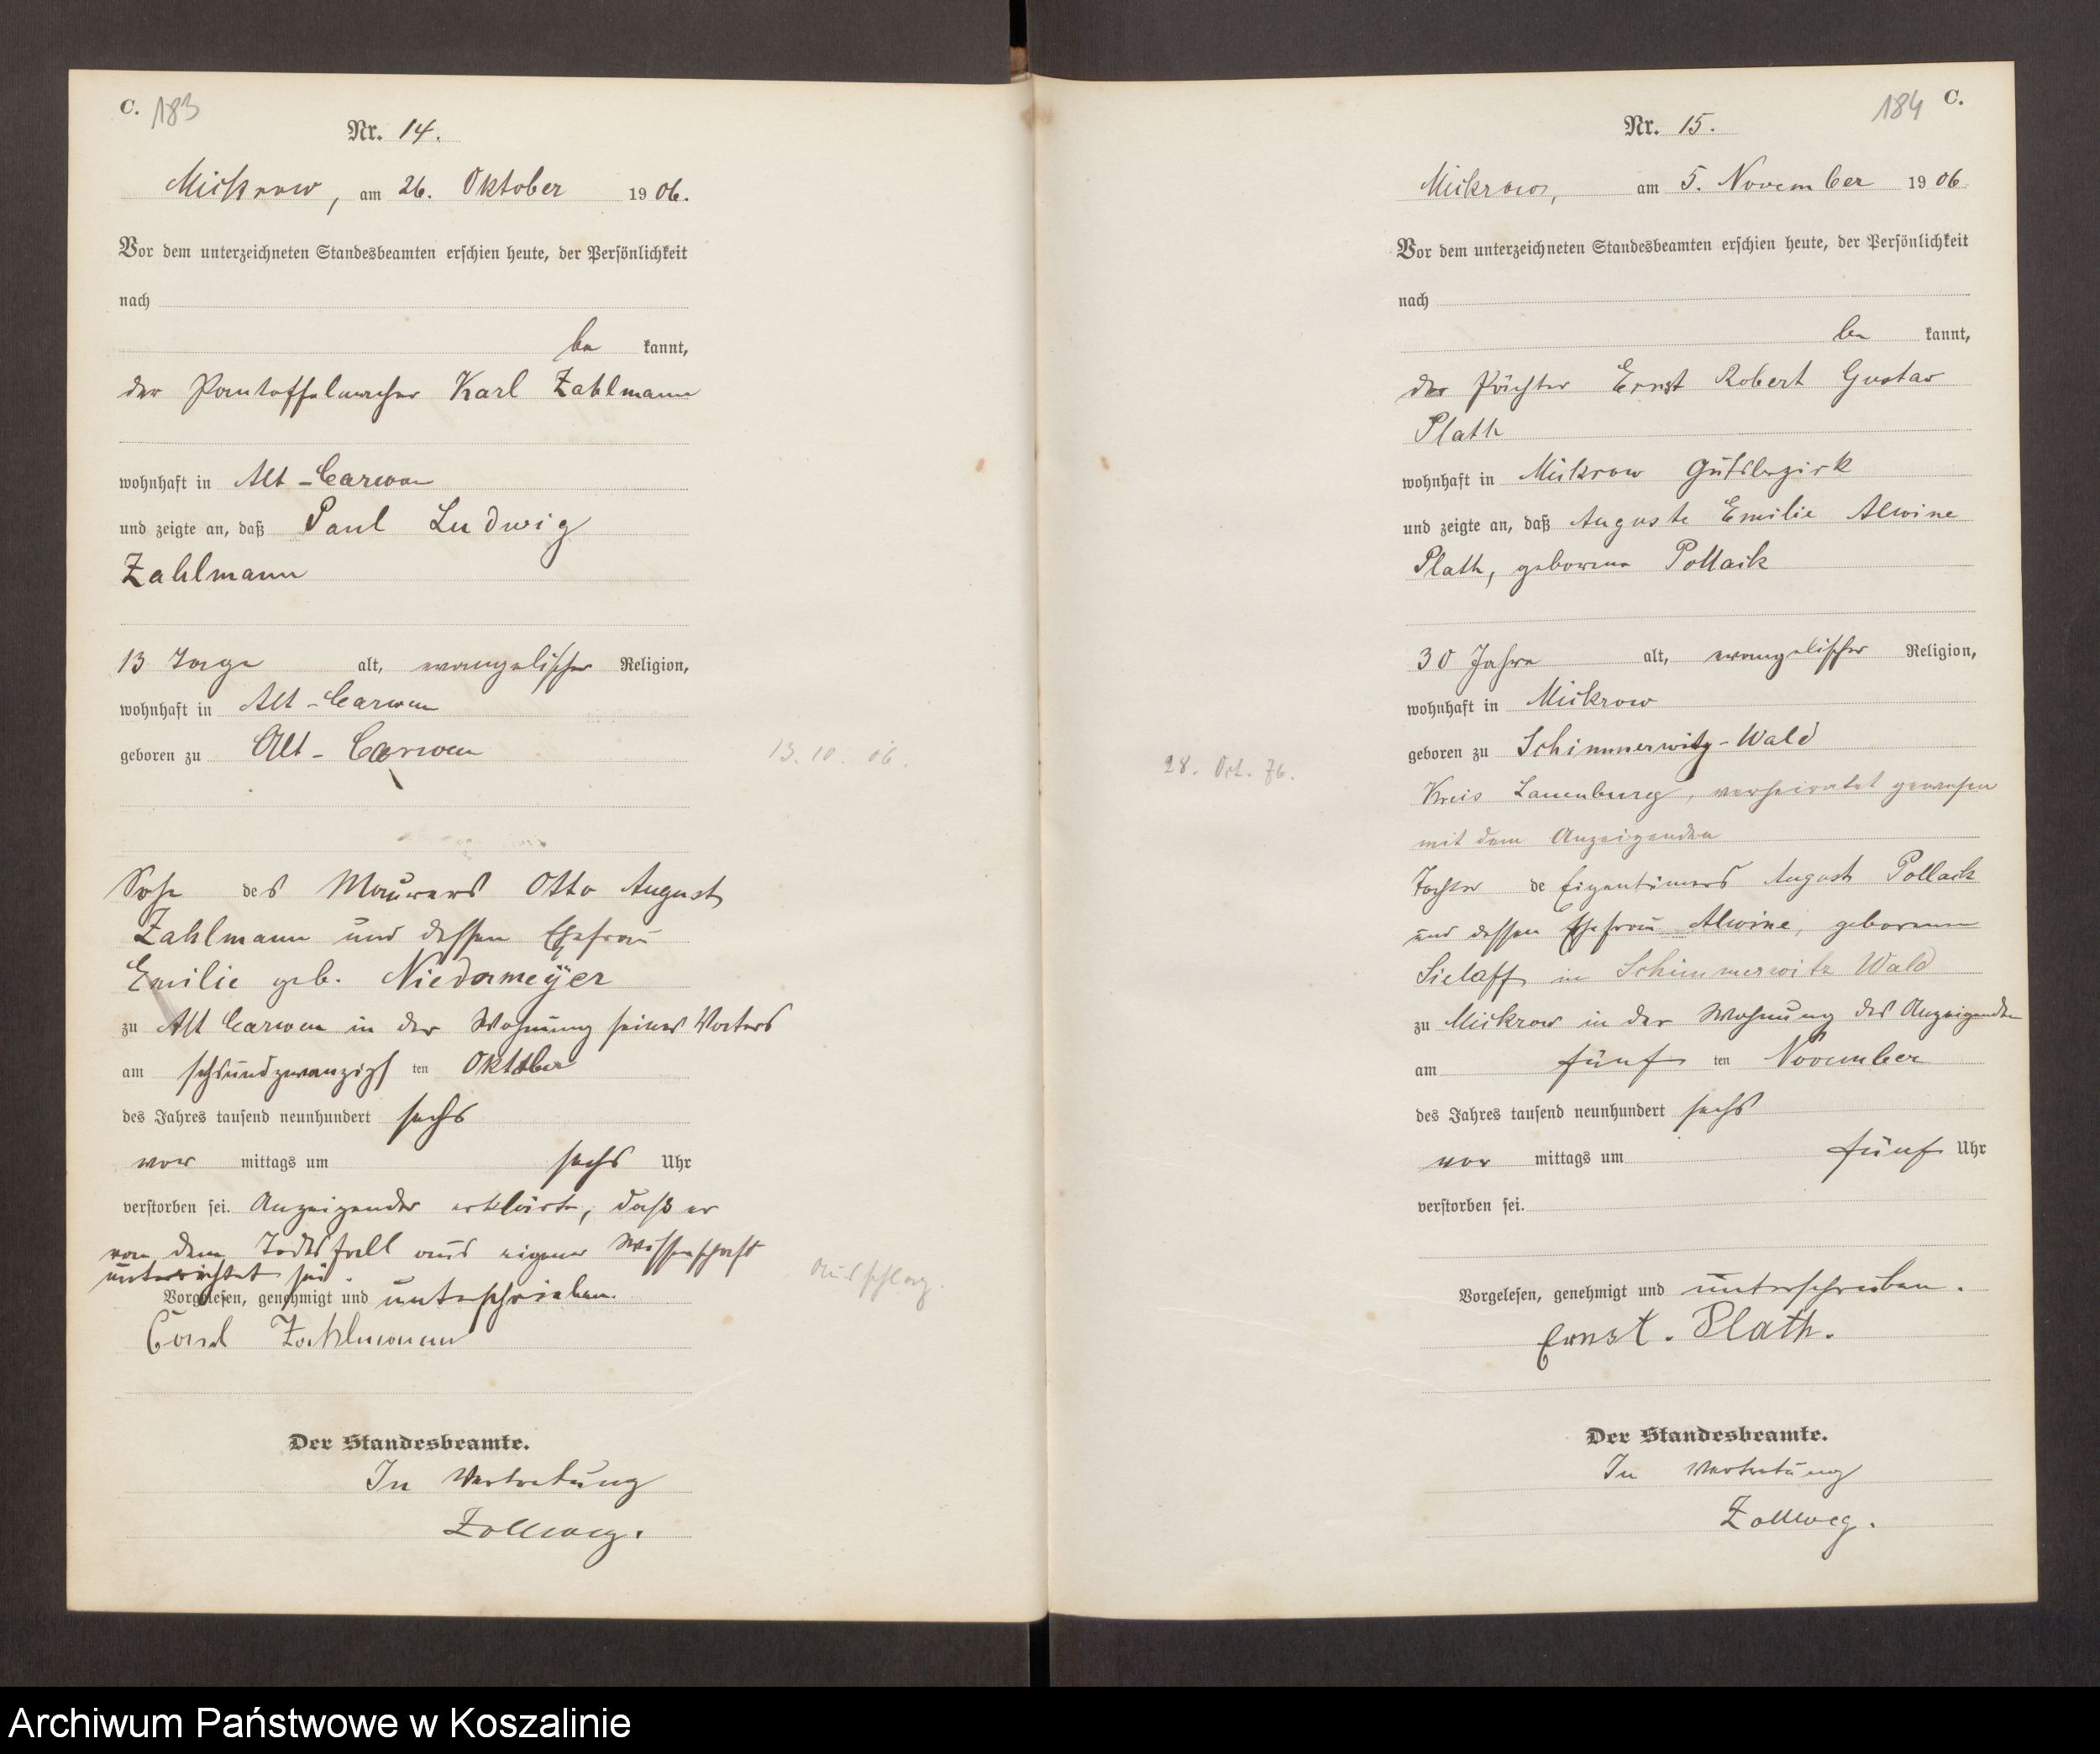 C. 183
Nr. 14.
Mickrow, am 26. Oktober 1906.
Vor dem unterzeichneten Standesbeamten erschien heute, der Persönlichkeit
nach
be kannt,
der Pantoffelmacher Karl Zahlmann
wohnhaft in Alt-Carwen
und zeigte an, daß Paul Ludwig
Zahlmann
13 Tage alt, evangelischer Religion,
wohnhaft in Alt-Carwen
geboren zu Alt-Carwen
13. 10. 06.
Sohn des Maurers Otto August
Zahlmann und dessen Ehefrau
Emilie geb. Niedermeÿer
zu Alt Carwen in der Wohnung seines Vaters
am sechsundzwanzigs ten Oktober
des Jahres tausend neunhundert sechs
vor mittags um sechs Uhr
verstorben sei. Anzeigender erklärte, daß er
von dem Todesfall aus eigener Wissenschaft
unterrichtet sei.
Vorgelesen, genehmigt und unterschrieben.
Carl Zahlmann
Ausschlag.
Der Standesbeamte.
In Vertretung
Zollweg.
184 C.
Nr. 15.
Mickrow, am 5. November 1906
Vor dem unterzeichneten Standesbeamten erschien heute, der Persönlichkeit
nach
be kannt,
der Pächter Ernst Robert Gustav
Plath
wohnhaft in Mickrow Gutsbezirk
und zeigte an, daß Auguste Emilie Alwine
Plath, geborene Pollack
30 Jahre alt, evangelischer Religion,
wohnhaft in Mickrow
geboren zu Schimmerwitz-Wald
28. Oct. 76.
Kreis Lauenburg, verheiratet gewesen
mit dem Anzeigenden
Tochter de Eigentümers August Pollack
und dessen Ehefrau Alwine, geborenen
Sielaff in Schimmerwitz Wald
zu Mickrow in der Wohnung des Anzeigenden
am fünf ten November
des Jahres tausend neunhundert sechs
vor mittags um fünf Uhr
verstorben sei.
Vorgelesen, genehmigt und unterschrieben.
Ernst. Plath.
Der Standesbeamte.
In Vertretung
Zollweg.
Archiwum Państwowe w Koszalinie